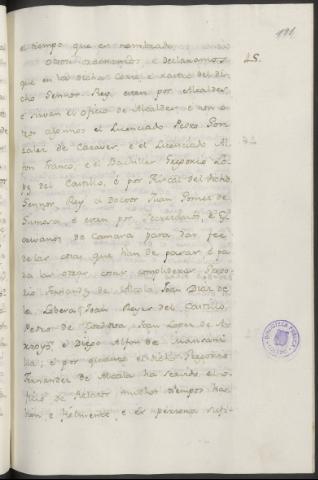 191
el tiempo que es nombrado
otrosi ordenamos e declaramos 45.
que en la dicha Corte, e rastro del di-
cho Sennor Rey, esten por Alcaldes
e sirvan el oficio de Alcaldes e non o-
tros algunos el Licenciado Pedro Gon-
zalez de Caraver, e el Licenciado Al-
fon Franco, e el Bachiller Gregorio Lo-
pez del Castillo, é por Fiscal del dicho
Sennor Rey, el Doctor Juan Gomez de
Zamora e esten por Secretarios, é Es-
crivanos de Camara para dar fee
de las cosas que han de pasar, é pa-
ra las otras cosas complideras
Fernandez de Alcala Joan Diaz de
la Lobera, Joan Reyes del Castillo,
Pedro de Cordova, Joan Lopez de
e Diego Alfon de Mansani-
lla; é por quanto el dicho
Fernandez de Alcala ha seerdo el o-
ficio de Relator muchos tiempos ha
bien, e fielmente, e es persona sufi-